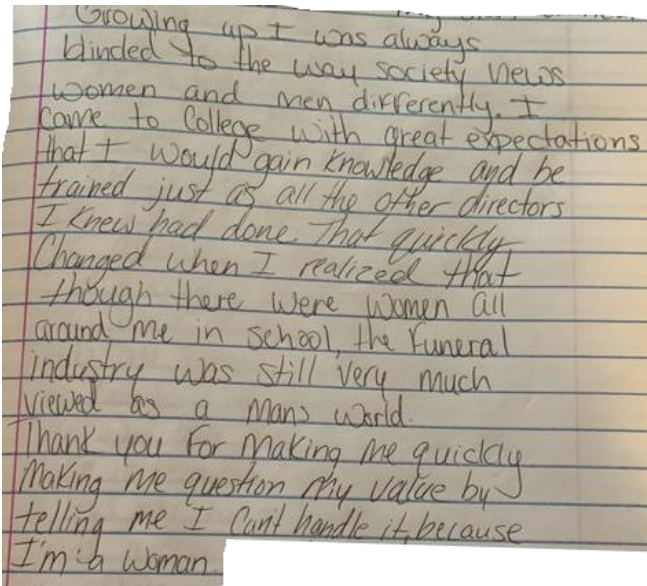 Growing up I was always
blinded to the way society views
women and men differently. I
came to College with great expectations
that I would gain knowledge and be
trained just as all the other directors
I knew had done. That quickly
Changed when I realized that
though there were women all
around me in school, the Funeral
industry was still very much
viewed as a mans world.
Thank you for making me quickly
making me question my value by
telling me I can't handle it, because
I'm a woman.